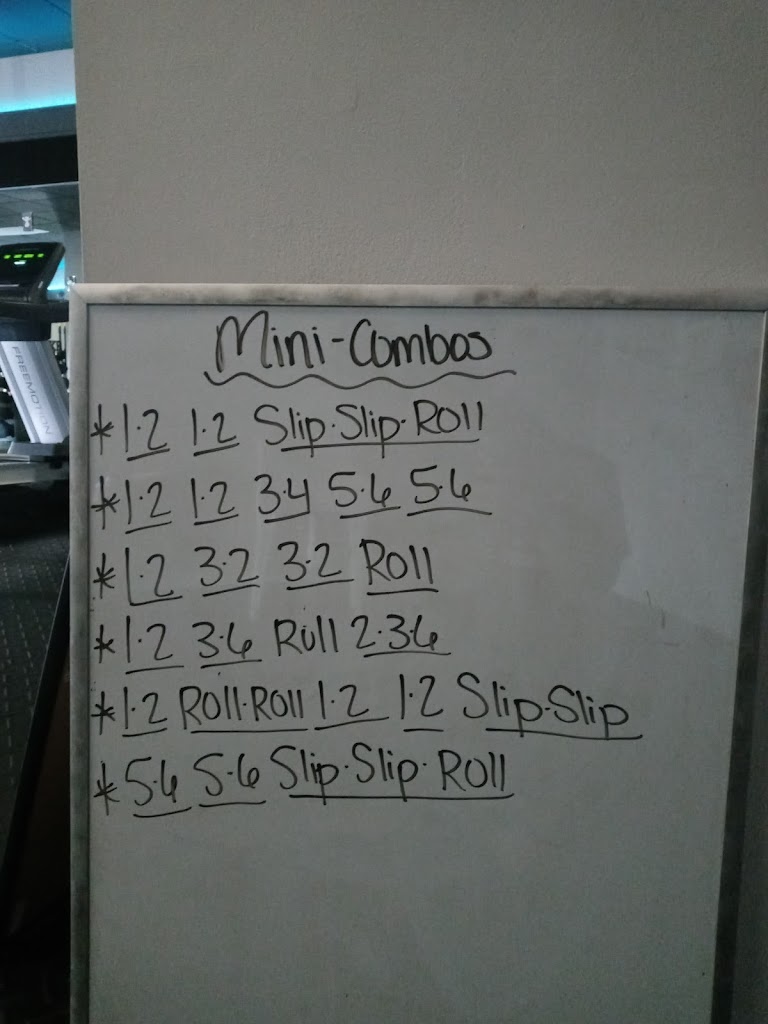 FREEMOTION
Mini-Combos
*1·2 1·2 Slip·Slip·Roll
*1·2 1·2 3·4 5·6 5·6
*1·2 3·2 3·2 Roll
*1·2 3·6 Roll 2·3·6
*1·2 Roll·Roll 1·2 1·2 Slip·Slip
*5·6 5·6 Slip·Slip·Roll